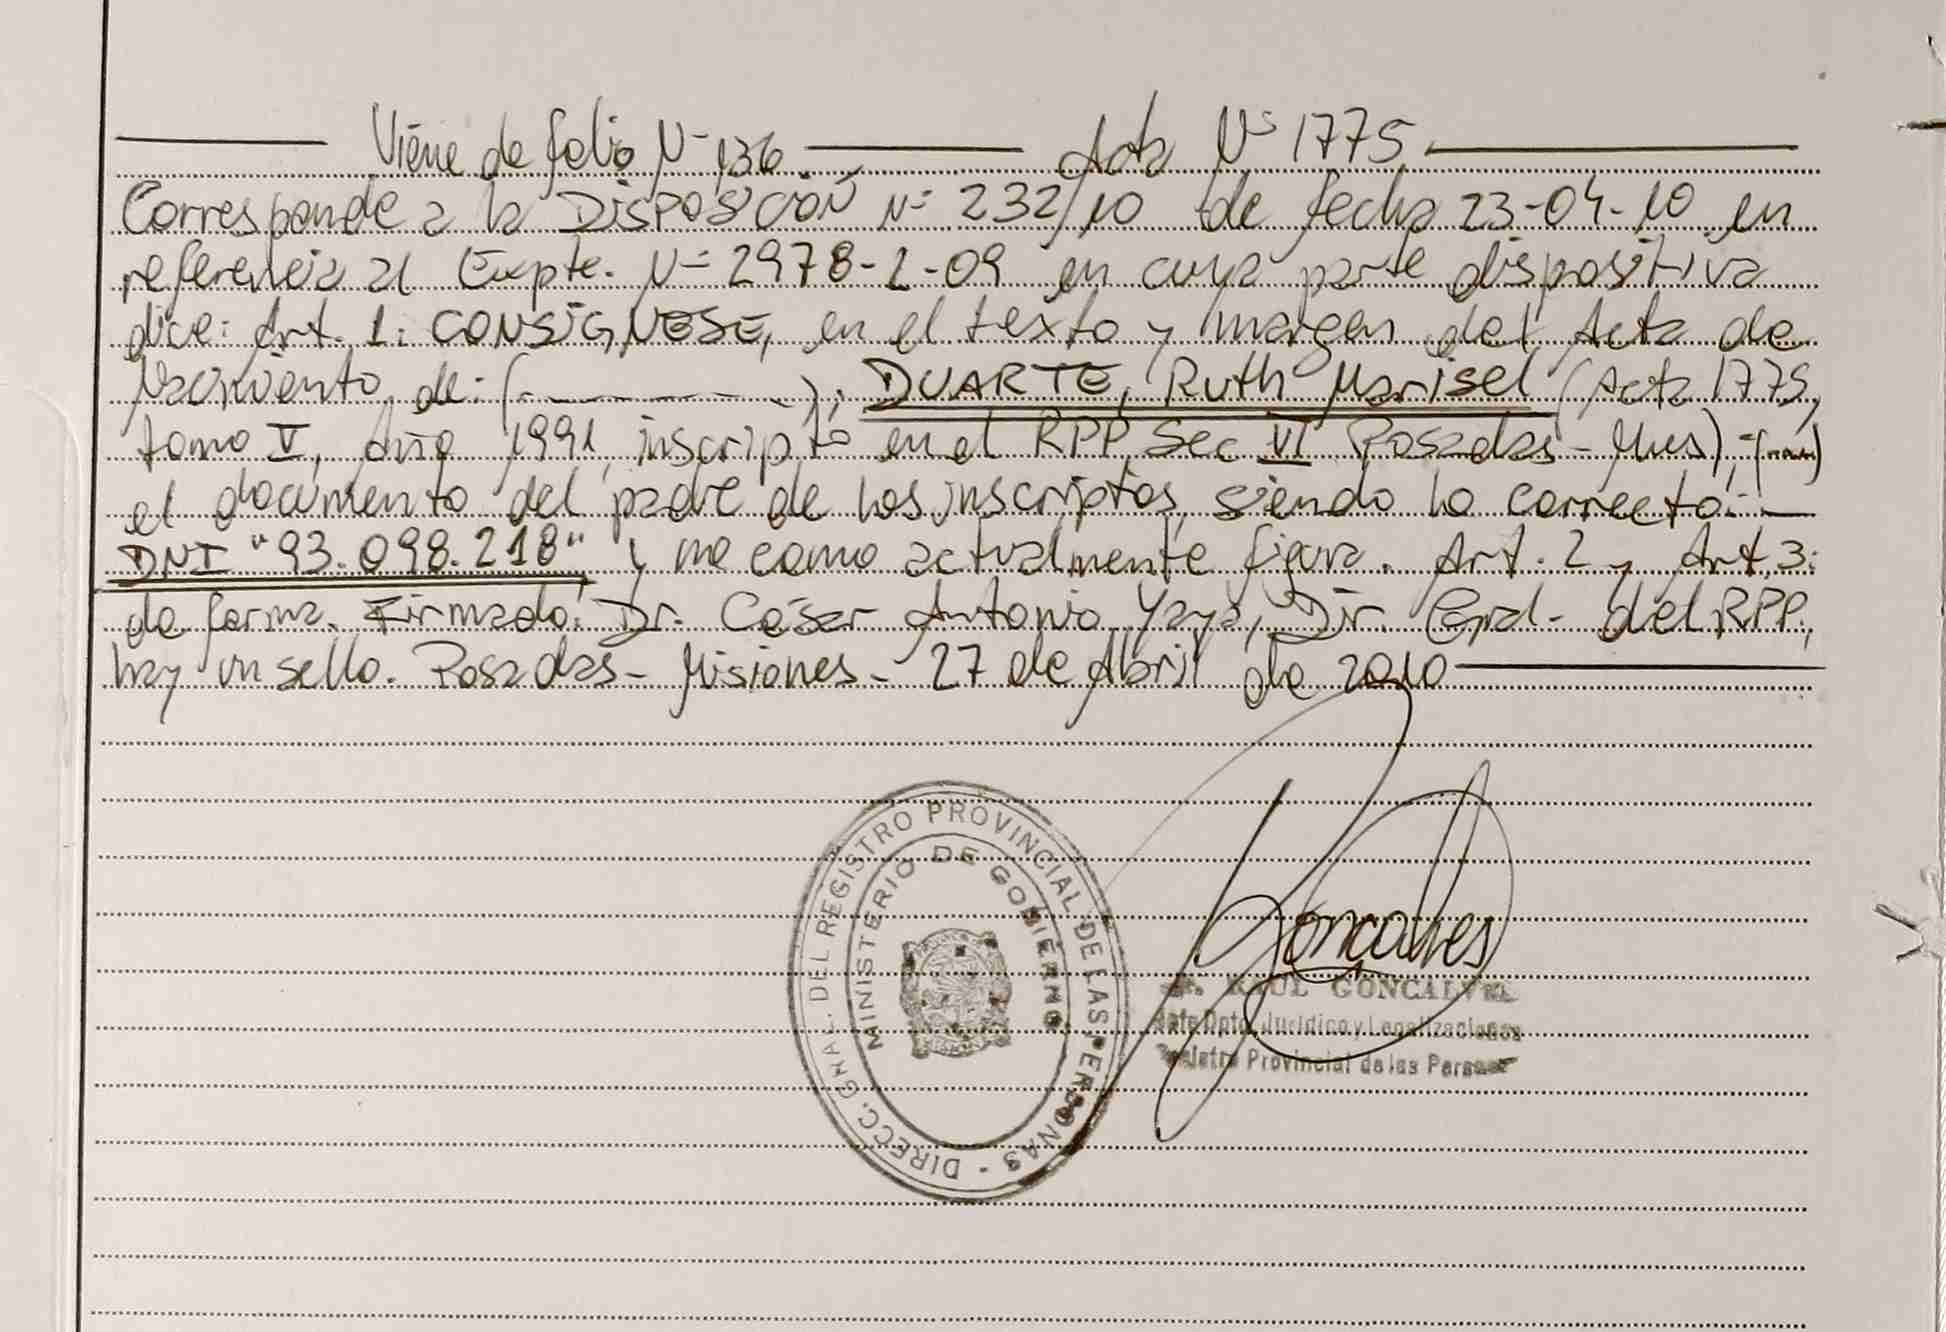 Viene de folio N- 136 Acta Nº 1775
Corresponde a la DISPOSICIÓN Nº 232/10 de fecha 23-04-10 en
referencia al Expte. Nº 2978-L-09 en cuya parte dispositiva
dice: Art. 1: CONSÍGNESE, en el texto y margen del Acta de
Nacimiento de: (---------); DUARTE, Ruth Marisel (Acta 1775,
tomo V, año 1991, inscripto en el RPP, Sec VI Posadas - Mnes), -(---)
el documento del padre de los inscriptos, siendo lo correcto: -
DNI "93.098.218" y no como actualmente figura. Art. 2 y Art. 3:
de forma. Firmado: Dr. César Antonio Yaya, Dir. Gral- del RPP,
hay un sello. Posadas - Misiones - 27 de Abril de 2010
DIRECC. GNAL. DEL REGISTRO PROVINCIAL DE LAS PERSONAS -
MINISTERIO DE GOBIERNO
Goncalves
RAUL GONCALVES
Jefe Dpto. Jurídico y Legalizaciones
Registro Provincial de las Personas